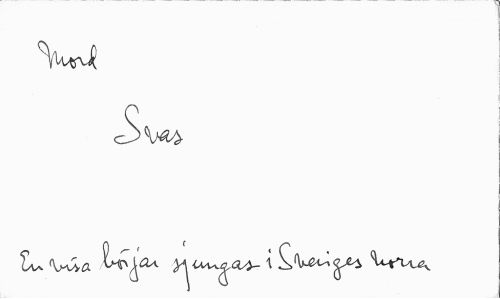 Mord
Svas
En visa börjar sjungas i Sveriges norra